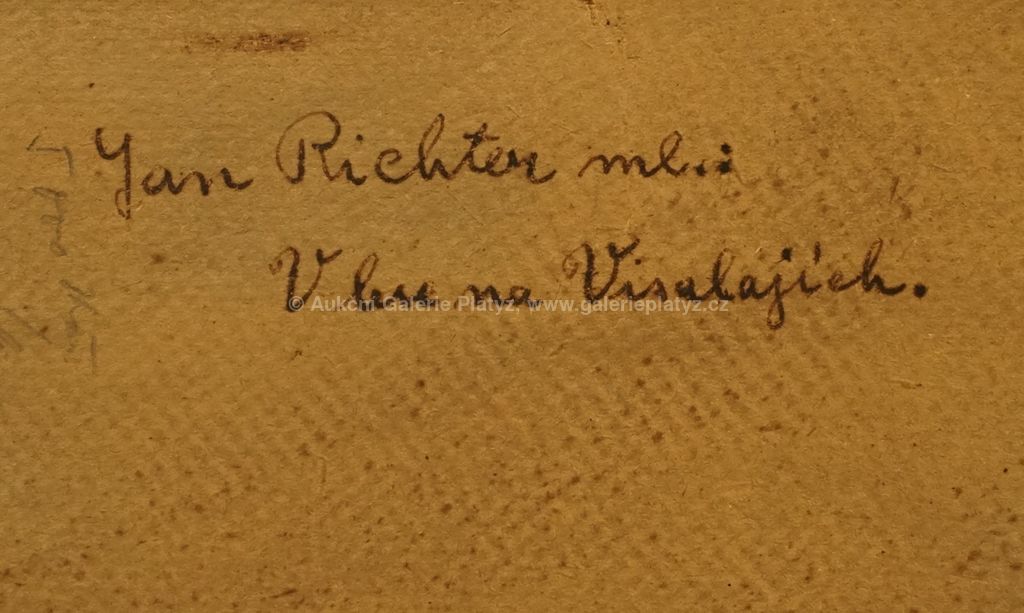 Jan Richter ml.:
V lese na Visalajích.
© Aukční Galerie Platýz, www.galerieplatyz.cz